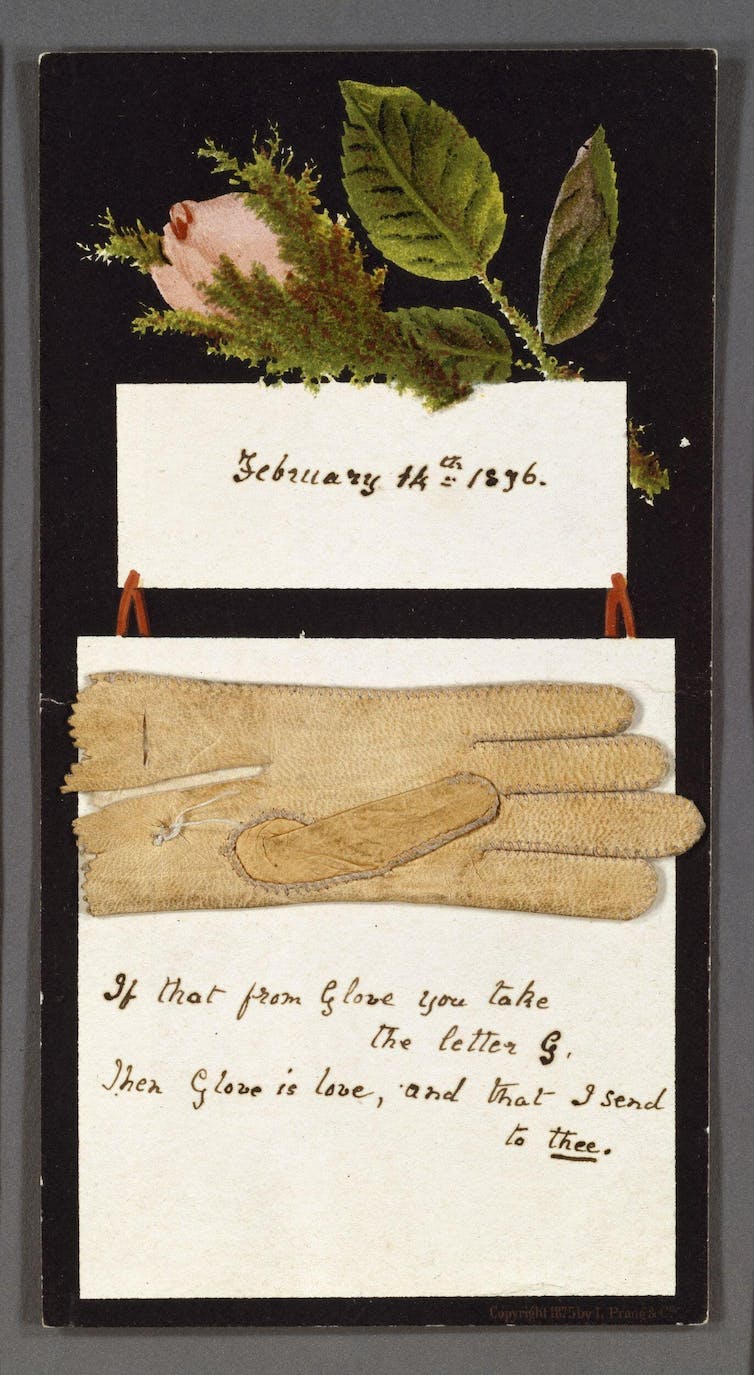 February 14th 1876.
If that from Glove you take
the letter G,
Then Glove is love, and that I send
to thee.
Copyright 1875 by L. Prang & Co.